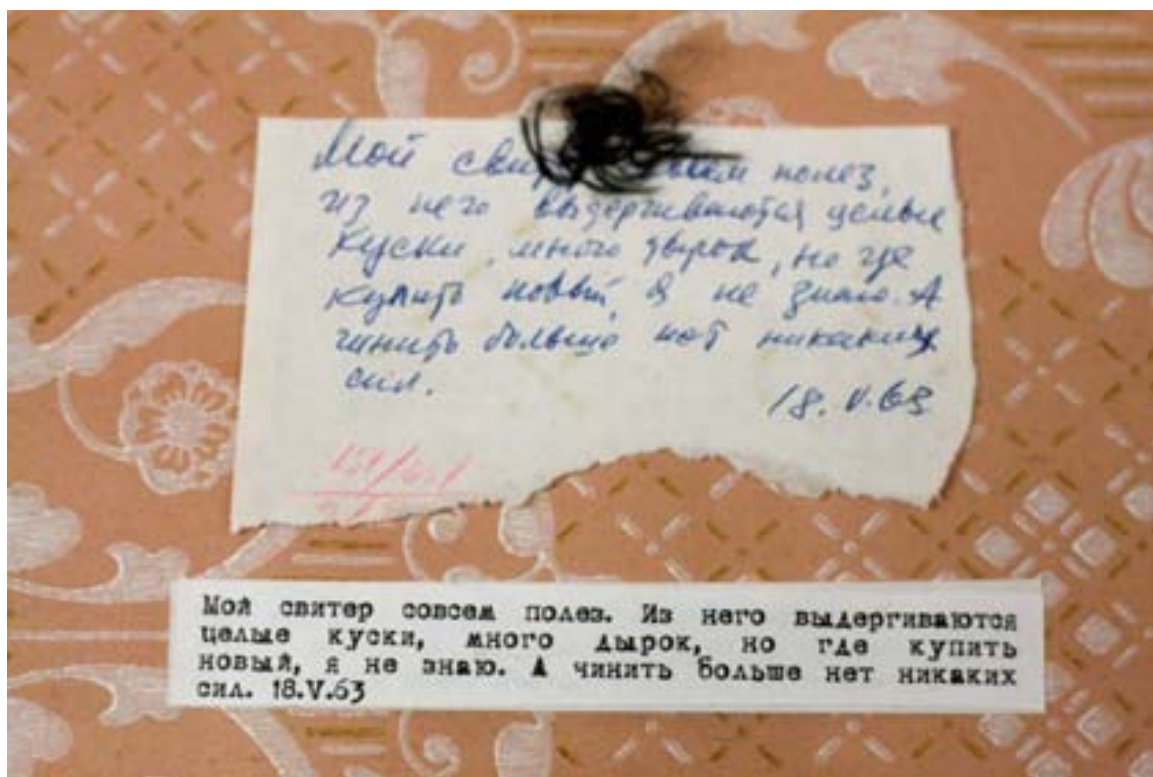 Мой сви полез,
из него выдергиваются целые
куски, много дырок, но где
купить новый, я не знаю. А
чинить больше нет никаких
сил.
18.V.63
Мой свитер совсем полез. Из него выдергиваются
целые куски, много дырок, но где купить
новый, я не знаю. А чинить больше нет никаких
сил. 18.V.63